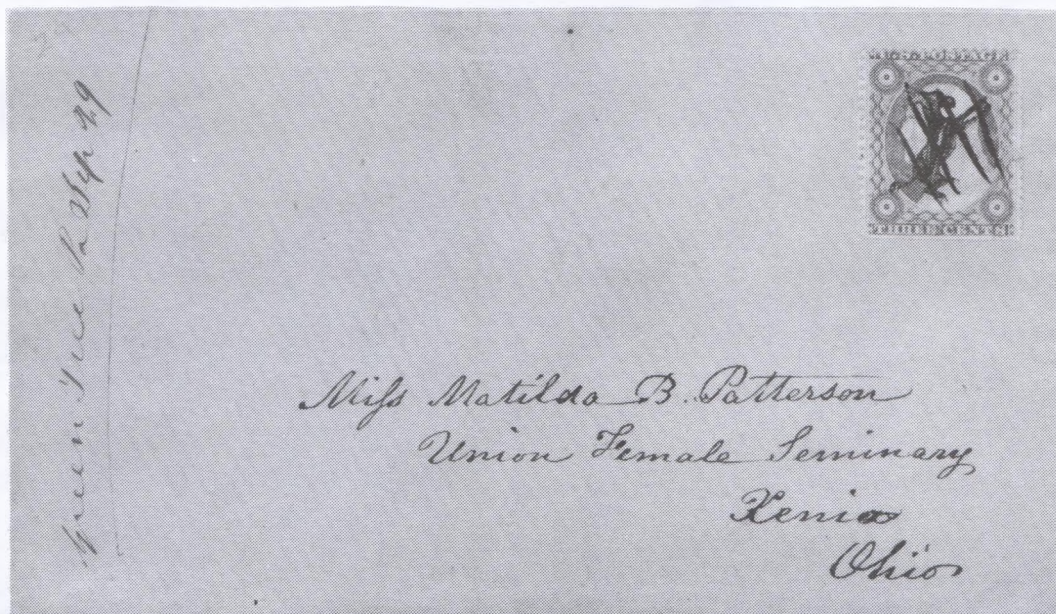 Green Tree Pa Sep 29
U.S. POSTAGE
THREE CENTS
Miſs Matilda B. Patterson
Union Female Seminary
Xenia
Ohio